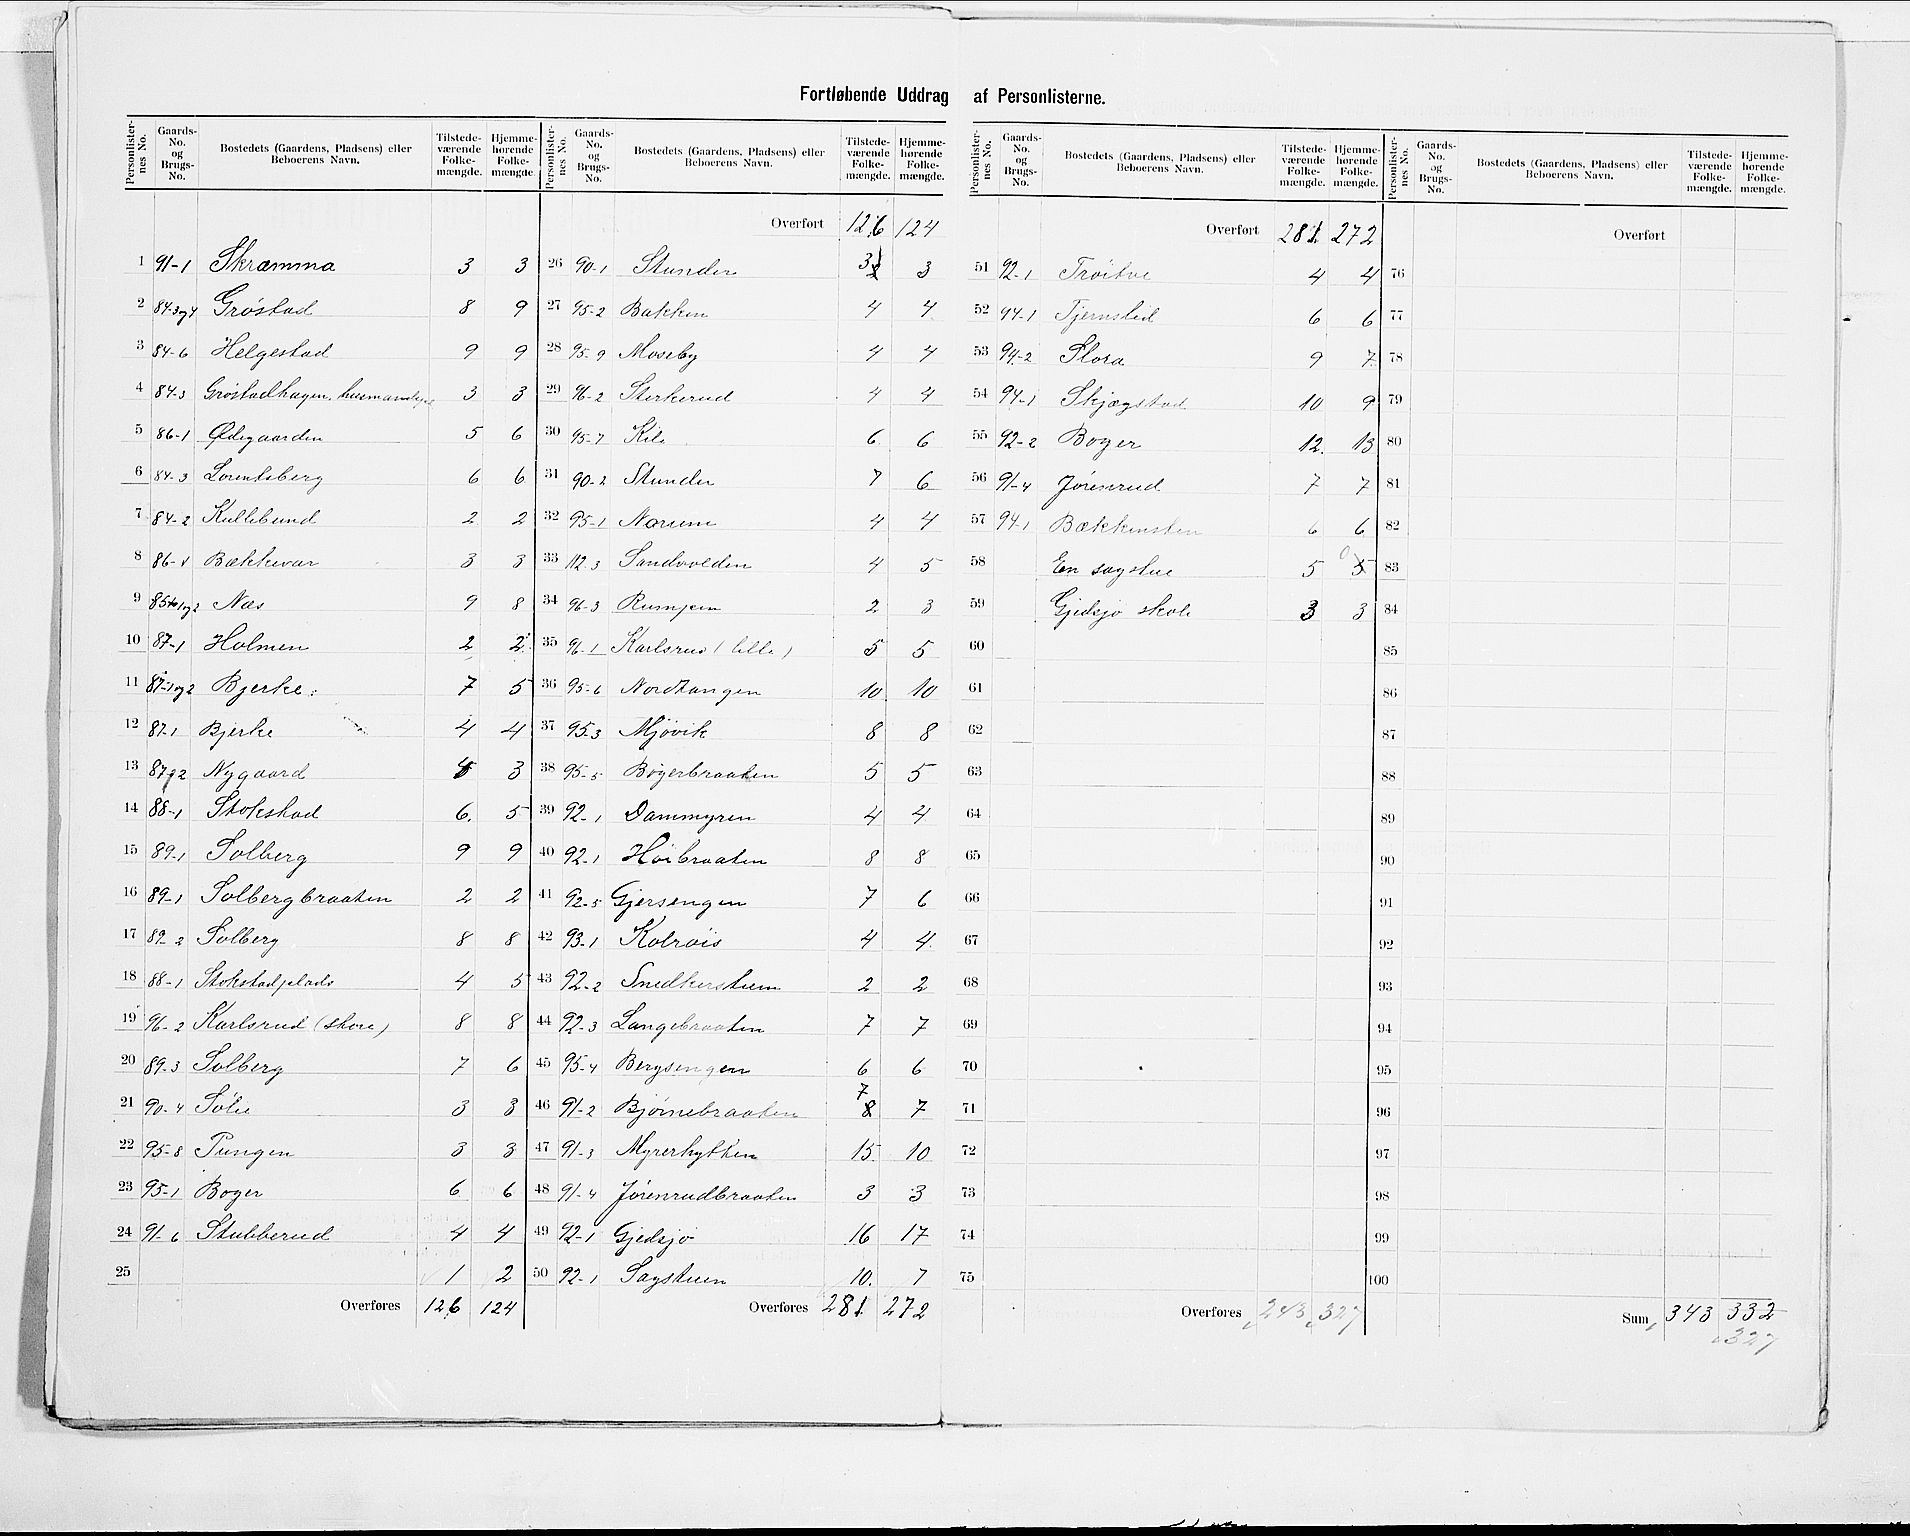 Fortløbende Uddrag af Personlisterne.
Personlister-nes No. Gaards-No. og Brugs-No. Bostedets (Gaardens, Pladsens) eller Beboerens Navn. Tilstede-værende Folke-mængde. Hjemme-hørende Folke-mængde.
1 91-1 Skramma 3 3
2 84-3og4 Grøstad 8 9
3 84-6 Helgestad 9 9
4 84-3 Grøstadhagen, husmandspl 3 3
5 86-1 Ødegaarden 5 6
6 84-3 Lorentsberg 6 6
7 84-2 Kullebund 2 2
8 86-1 Bækkevar 3 3
9 85 1og2 Næs 9 8
10 87-1 Holmen 2 2
11 87-1og2 Bjerke 7 5
12 87-1 Bjerke 4 4
13 87-2 Nygaard 3
14 88-1 Stokstad 6 5
15 89-1 Solberg 9 9
16 89-1 Solbergbraaten 2 2
17 89-2 Solberg 8 8
18 88-1 Stokstadplads 4 5
19 96-2 Karlsrud (store) 8 8
20 89-3 Solberg 7 6
21 90-4 Sølie 3 3
22 95-8 Pungen 3 3
23 95-1 Boger 6 6
24 91-6 Stubberud 4 4
25 1 2
Overføres 126 124
Personlister-nes No. Gaards-No. og Brugs-No. Bostedets (Gaardens, Pladsens) eller Beboerens Navn. Tilstede-værende Folke-mængde. Hjemme-hørende Folke-mængde.
Overført 126 124
26 90-1 Stunder 3 3
27 95-2 Bakken 4 4
28 95-9 Moseby 4 4
29 96-2 Sterkerud 4 4
30 95-7 Kile 6 6
31 90-2 Stunder 7 6
32 95-1 Narum 4 4
33 112-3 Sandvolden 4 5
34 96-3 Rumpen 2 3
35 96-1 Karlsrud (lille) 5 5
36 95-6 Nordtangen 10 10
37 95-3 Mjøvik 8 8
38 95-5 Bøgerbraaten 5 5
39 92-1 Dammyren 4 4
40 92-1 Høibraaten 8 8
41 92-5 Gjersengen 7 6
42 93-1 Kolrøis 4 4
43 92-2 Snedkerstuen 2 2
44 92-3 Langebraaten 7 7
45 95-4 Bergsengen 6 6
46 91-2 Bjørnebraaten 7 8 7
47 91-3 Myrerhytten 15 10
48 91-4 Jørenrudbraaten 3 3
49 92-1 Gjedsjø 16 17
50 92-1 Sagstuen 10 7
Overføres 281 272
Personlister-nes No. Gaards-No. og Brugs-No. Bostedets (Gaardens, Pladsens) eller Beboerens Navn. Tilstede-værende Folke-mængde. Hjemme-hørende Folke-mængde.
Overført 281 272
51 92-1 Trøitve 4 4
52 94-1 Tjernslid 6 6
53 94-2 Flora 9 7
54 94-1 Skjægstad 10 9
55 92-2 Boger 12 13
56 91-4 Jørenrud 7 7
57 94-1 Bækkensten 6 6
58 En sagstue 5 0 5
59 Gjedsjø skole 3 3
60
61
62
63
64
65
66
67
68
69
70
71
72
73
74
75
Overføres 243 327
Personlister-nes No. Gaards-No. og Brugs-No. Bostedets (Gaardens, Pladsens) eller Beboerens Navn. Tilstede-værende Folke-mængde. Hjemme-hørende Folke-mængde.
Overført
76
77
78
79
80
81
82
83
84
85
86
87
88
89
90
91
92
93
94
95
96
97
98
99
100
Sum 343 332
327